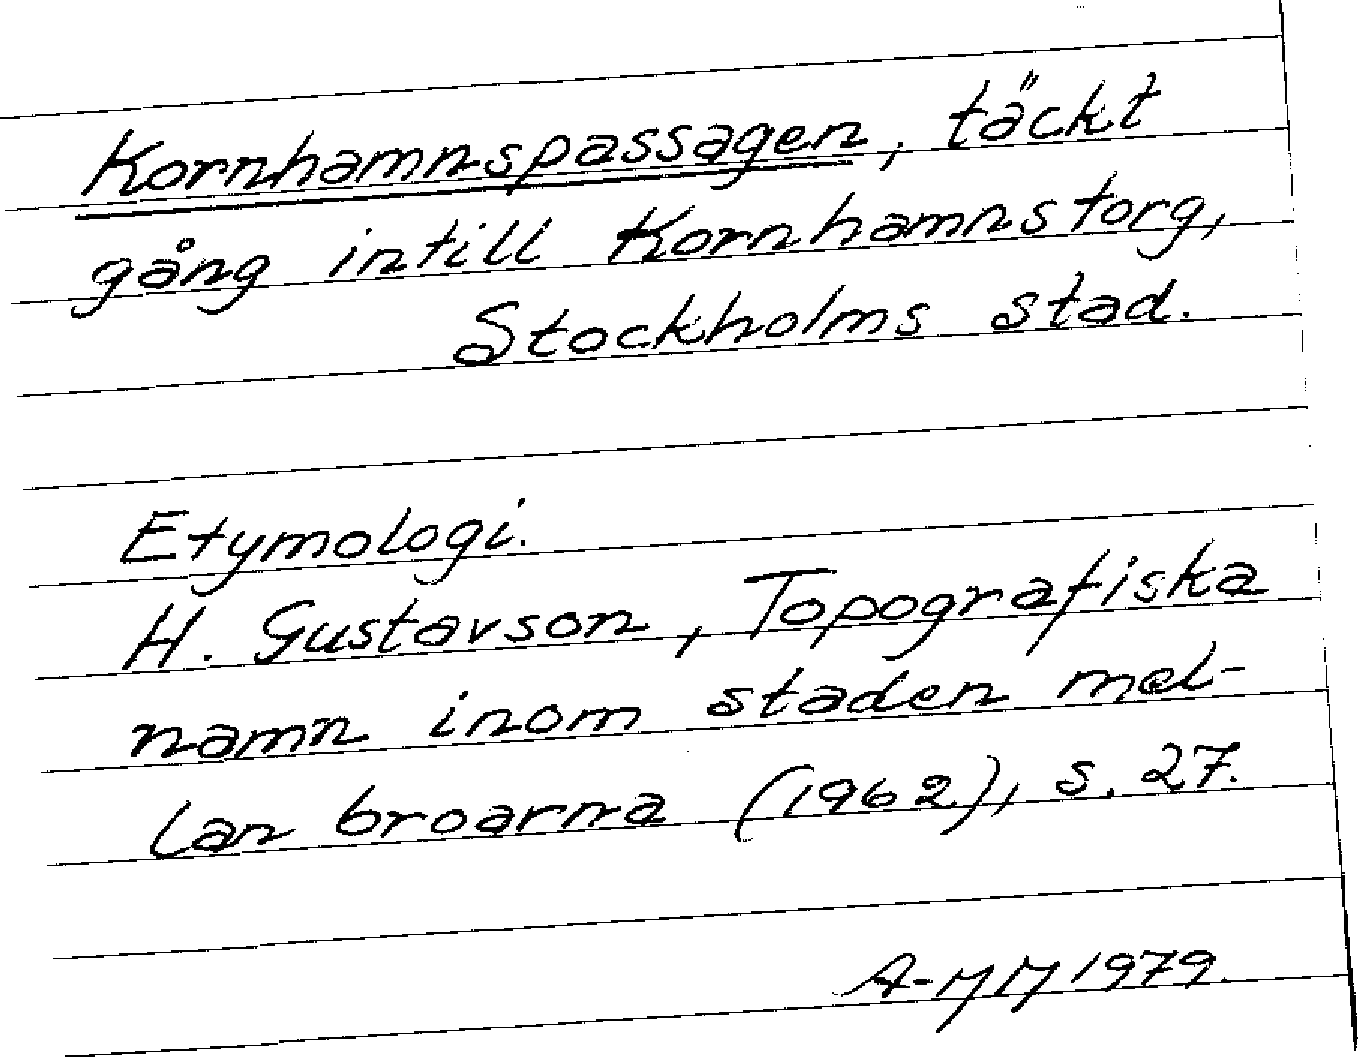 Kornhamnspassagen, täckt
gång intill Kornhamnstorg,
Stockholms stad.
Etymologi.
H. Gustavson, Topografiska
namn inom staden mel-
lan broarna (1962), s. 27.
A-MM 1979.